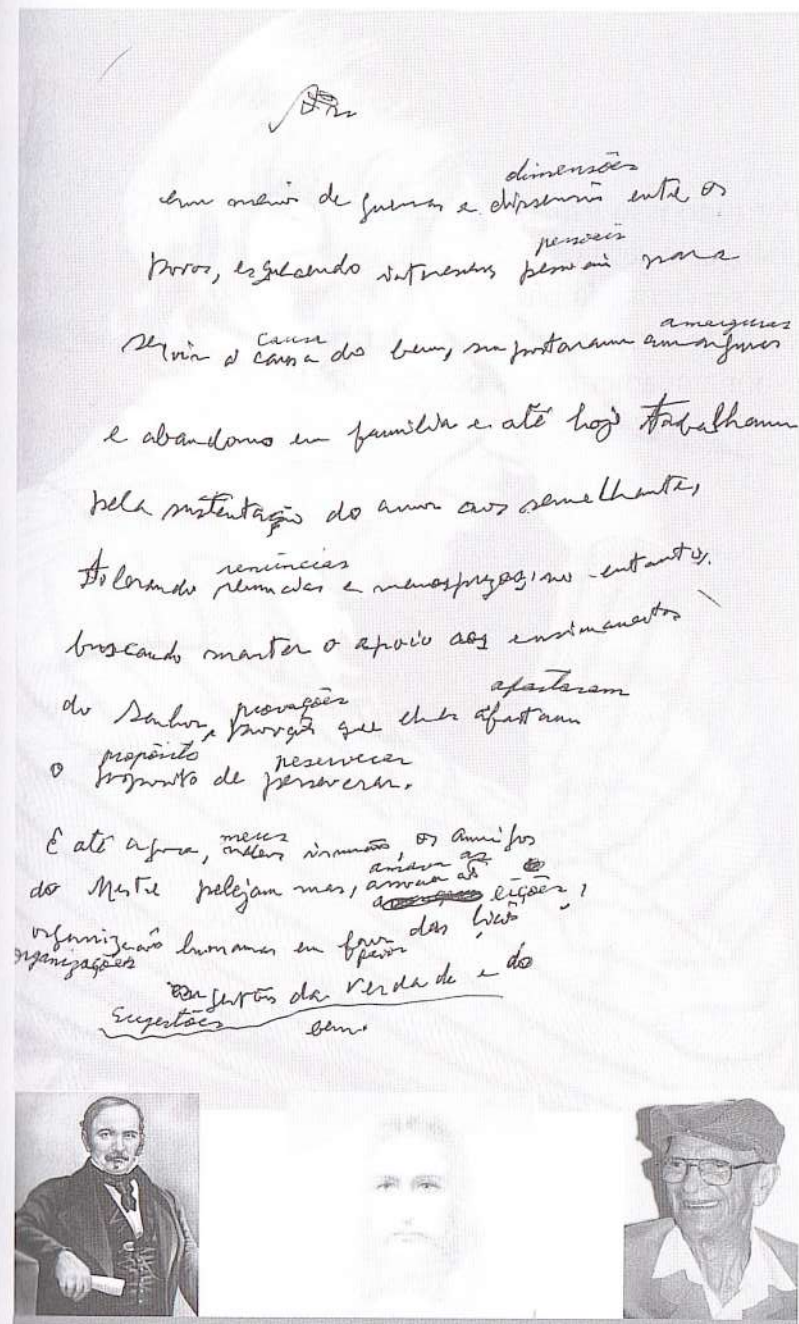 dimensões
em meio de guerras e dissensões entre os
pessoais
povos, esquecendo interesses pessoais para
causa amarguras
servir à causa do bem, suportaram amarguras
e abandono em família e até hoje trabalham
pela sustentação do amor aos semelhantes,
renúncias
tolerando renúncias e menosprezos, no entanto,
buscando manter o apoio aos ensinamentos
provações afastaram
do Senhor, que afastam
propósito perseverar
o propósito de perseverar.
meus
E até agora, meus irmãos, os amigos
do Mestre pelejam mas,
eições,
organização humanas em favor das
organizações favor
da verdade e do
Sugestões bem.